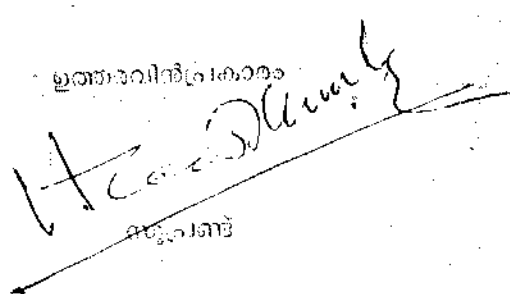 ഉത്തരവിൻപ്രകാരം
സൂപ്രണ്ട്